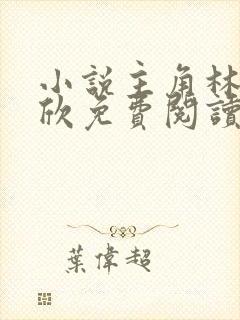 小說主角林
欣免費閱讀
葉偉超